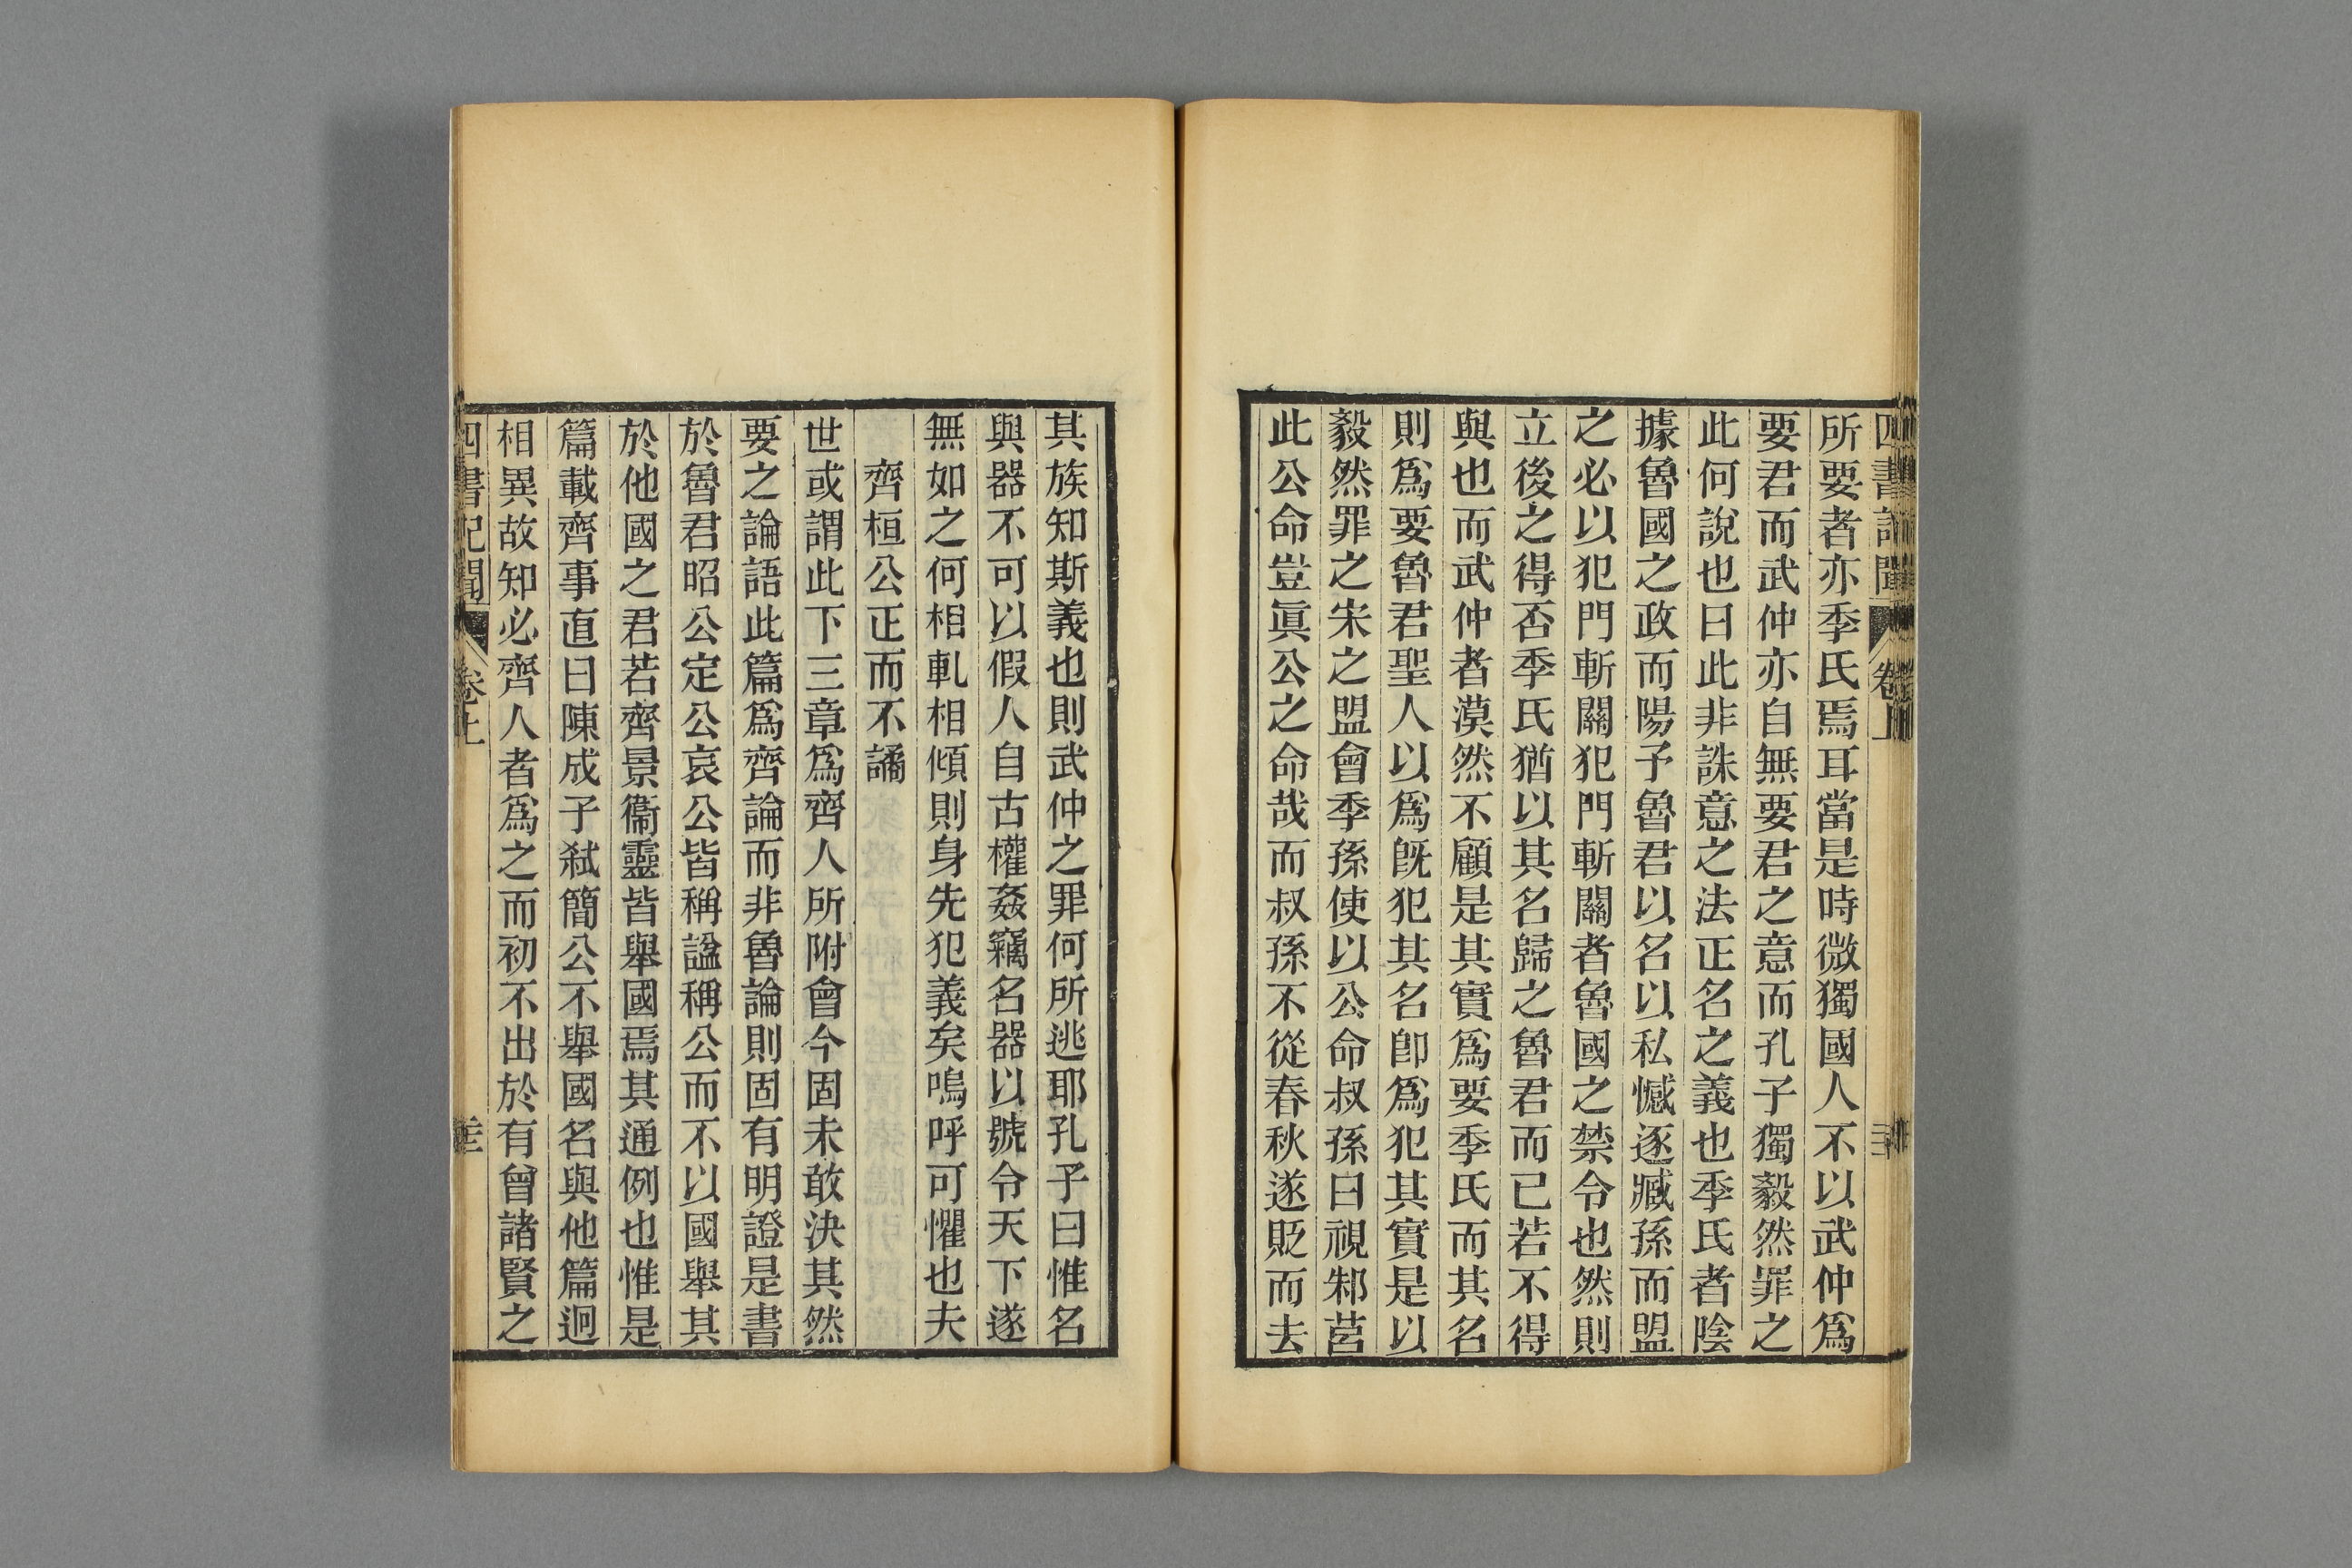 四書記聞 卷上
所要者亦季氏焉耳當是時微獨國人不以武仲爲
要君而武仲亦自無要君之意而孔子獨毅然罪之
此何說也曰此非誅意之法正名之義也季氏者陰
據魯國之政而陽予魯君以名以私憾逐臧孫而盟
之必以犯門斬關犯門斬關者魯國之禁令也然則
立後之得否季氏猶以其名歸之魯君而已若不得
與也而武仲者漠然不顧是其實爲要季氏而其名
則爲要魯君聖人以爲旣犯其名卽爲犯其實是以
毅然罪之宋之盟會季孫使以公命叔孫曰視邾莒
此公命豈眞公之命哉而叔孫不從春秋遂貶而去
其族知斯義也則武仲之罪何所逃耶孔子曰惟名
與器不可以假人自古權姦竊名器以號令天下遂
無如之何相軋相傾則身先犯義矣嗚呼可懼也夫
齊桓公正而不譎
世或謂此下三章爲齊人所附會今固未敢決其然
要之論語此篇爲齊論而非魯論則固有明證是書
於魯君昭公定公哀公皆稱諡稱公而不以國舉其
於他國之君若齊景衞靈皆舉國焉其通例也惟是
篇載齊事直曰陳成子弒簡公不舉國名與他篇迥
相異故知必齊人者爲之而初不出於有曾諸賢之
四書記聞 卷上